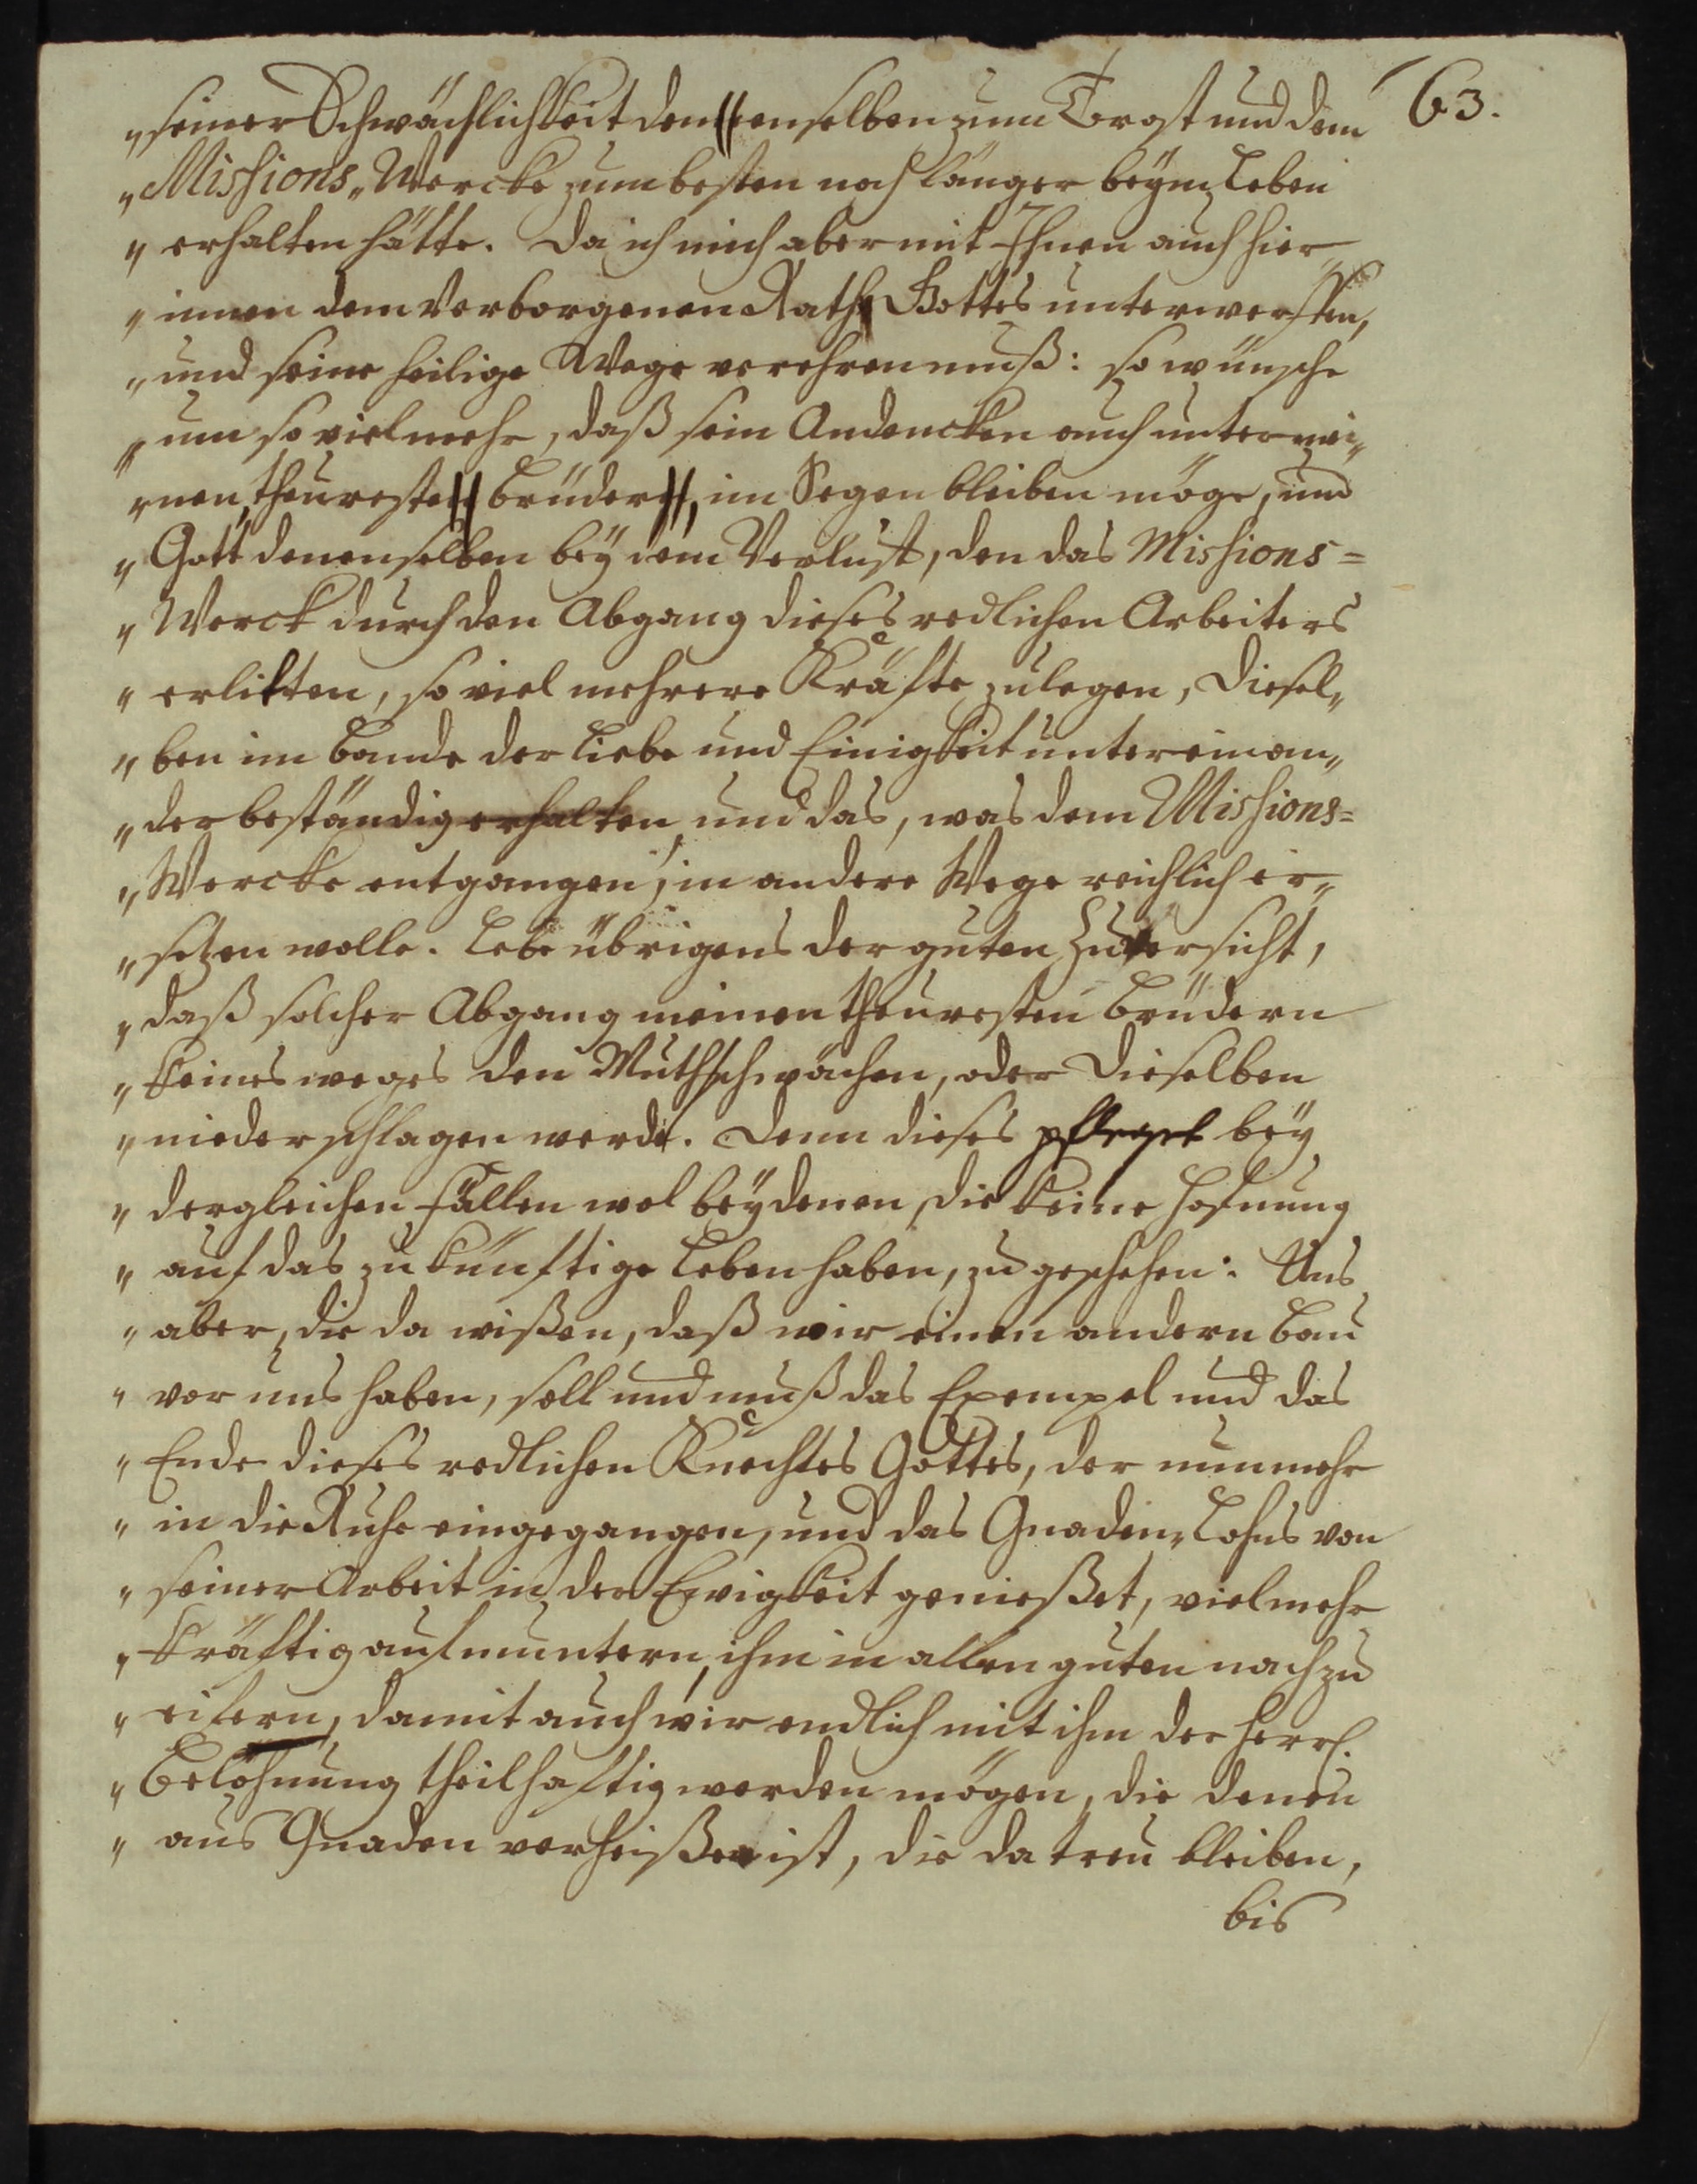 63.
„seiner Schwächlichkeit den||enselben zum Trost und dem
„Missions„Wercke zum besten noch länger beym Leben
„erhalten hätte. Da ich mich aber mit Ihnen auch hier„
„innen dem verborgenen Rath Gottes unterwerffen,
„und seine heilige Wege verehren muß: so wünsche
„um so viel mehr, daß sein Andencken auch unter mei„
„nen theureste|| Brüder||, im Segen bleiben möge, und
„Gott denenselben bey dem Verlust, den das Missions=
„Werck durch den Abgang dieses redlichen Arbeiters
„erlitten, so viel mehrere Kräfte zulegen, Diesel„
„ben im Bande der Liebe und Einigkeit untereinan„
„der beständig erhalten, und das, was dem Missions=
„Wercke entgangen, in andere Wege reichlich er„
„setzen wolle. Lebe übrigens der guten Zuversicht,
„daß solcher Abgang meinen theuresten Brüdern
„keines weges den Muth schwächen, oder Dieselben
„niederschlagen werde. Denn dieses pfleget bey
„dergleichen Fällen wol bey denen, die keine Hofnung
„auf das zukünftige Leben haben, zu geschehen: Uns
„aber, die da wißen, daß wir einen andern Bau
„vor uns haben, soll und muß das Exempel und das
„Ende dieses redlichen Knechtes Gottes, der nunmehr
„in die Ruhe eingegangen, und das Gnaden„Lohns von
„seiner Arbeit in der Ewigkeit genießet, vielmehr
„kräftig aufmuntern, ihm in allen guten nachzu
„eifern, damit auch wir endlich mit ihm der herrl.
„Belohnung theilhaftig werden mögen, die denen
„aus Gnaden verheißen ist, die da treu bleiben,
bis